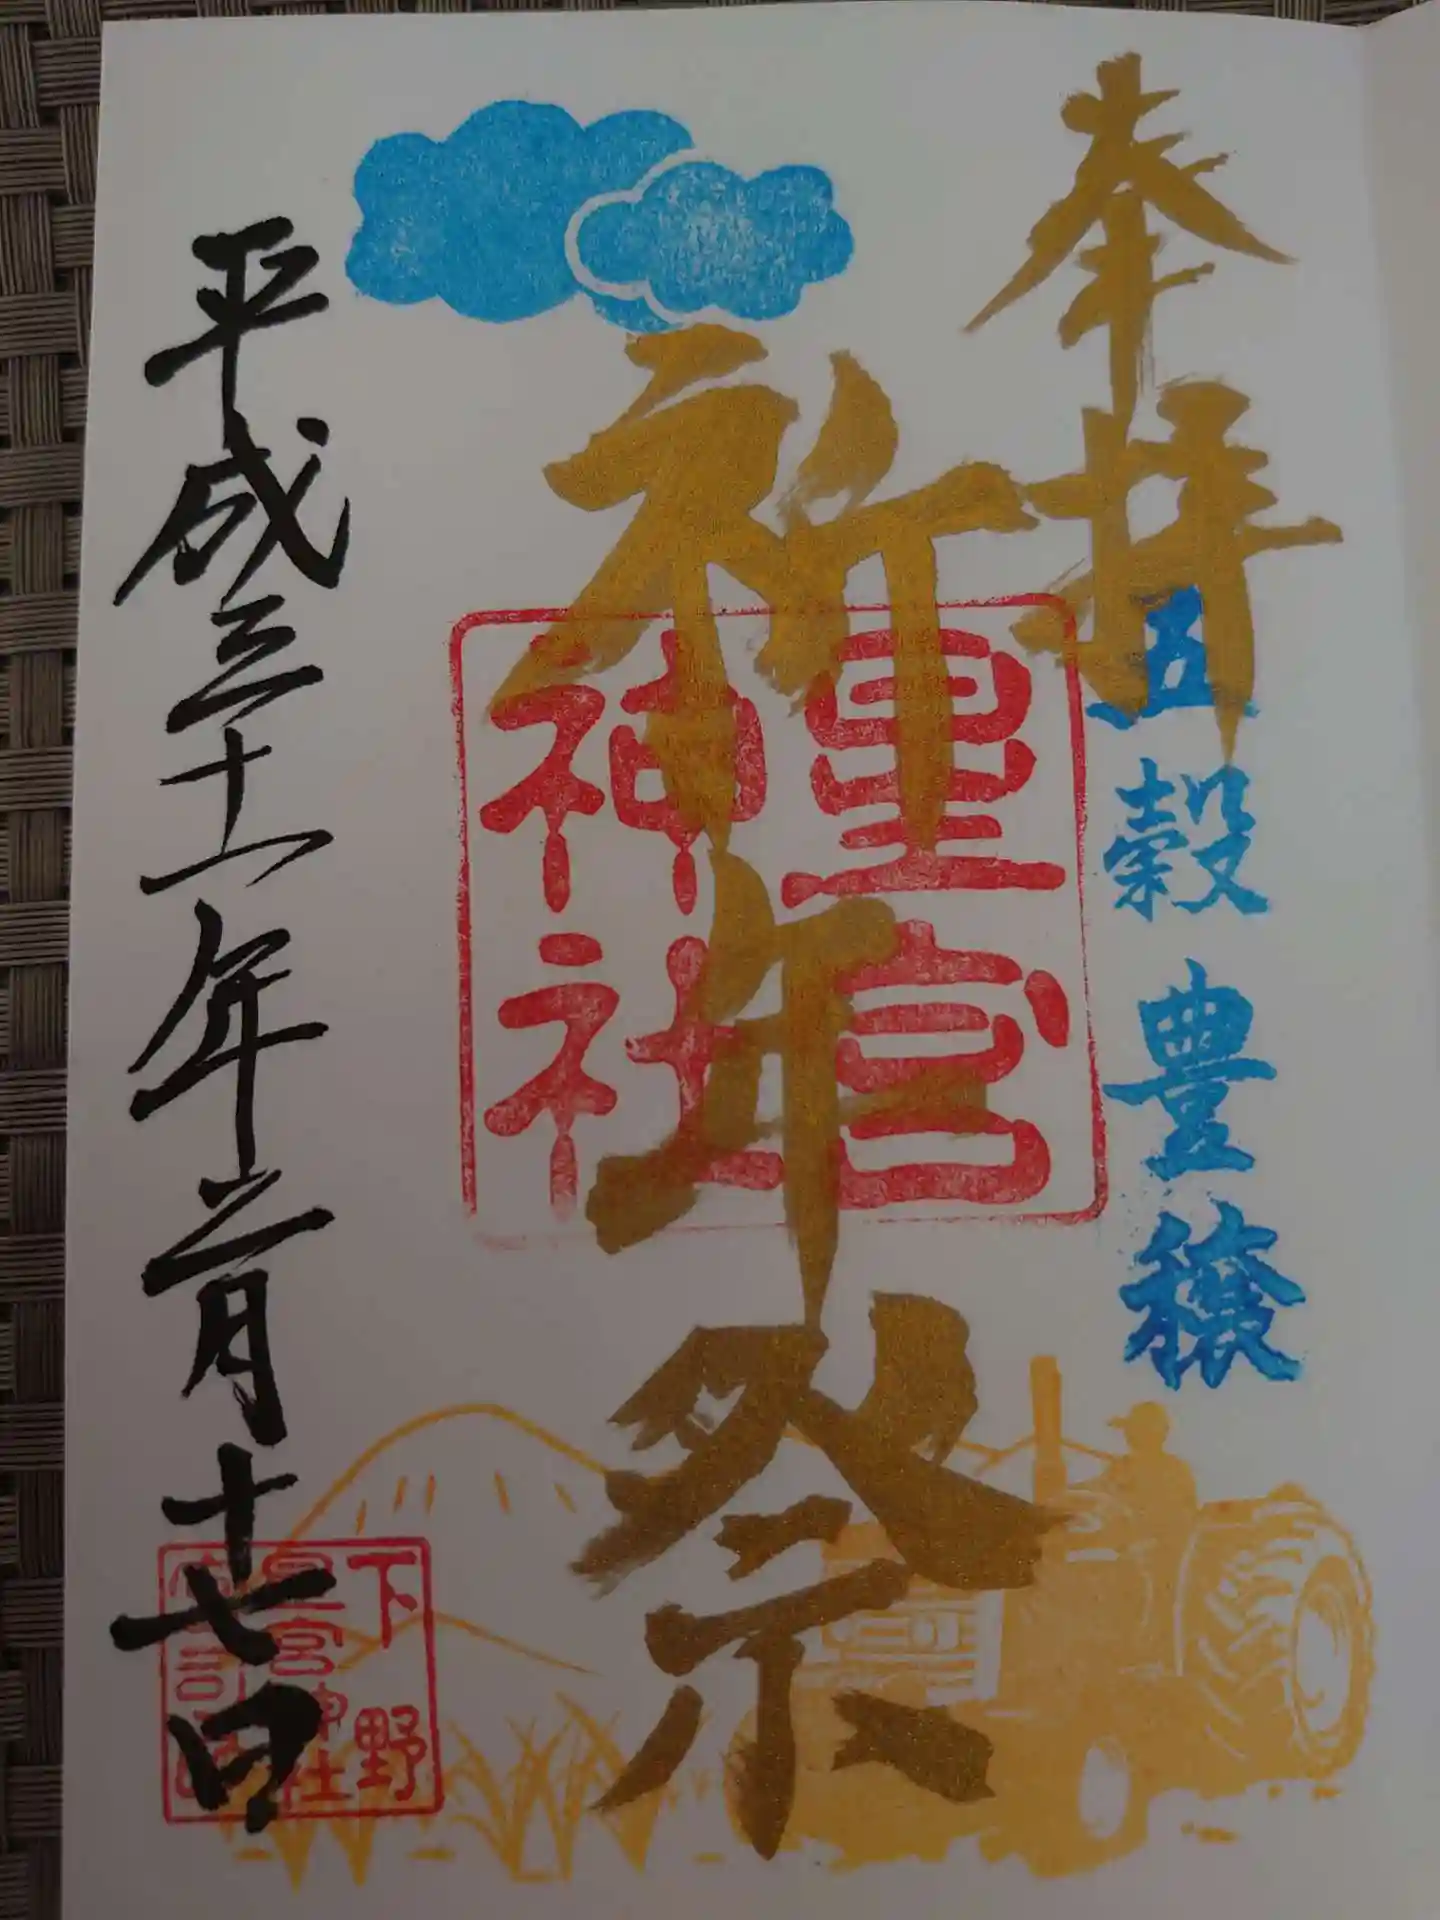 奉拝
五穀豊穣
祈年祭
星宮
神社
平成三十一年二月十七日
下野
星宮神社